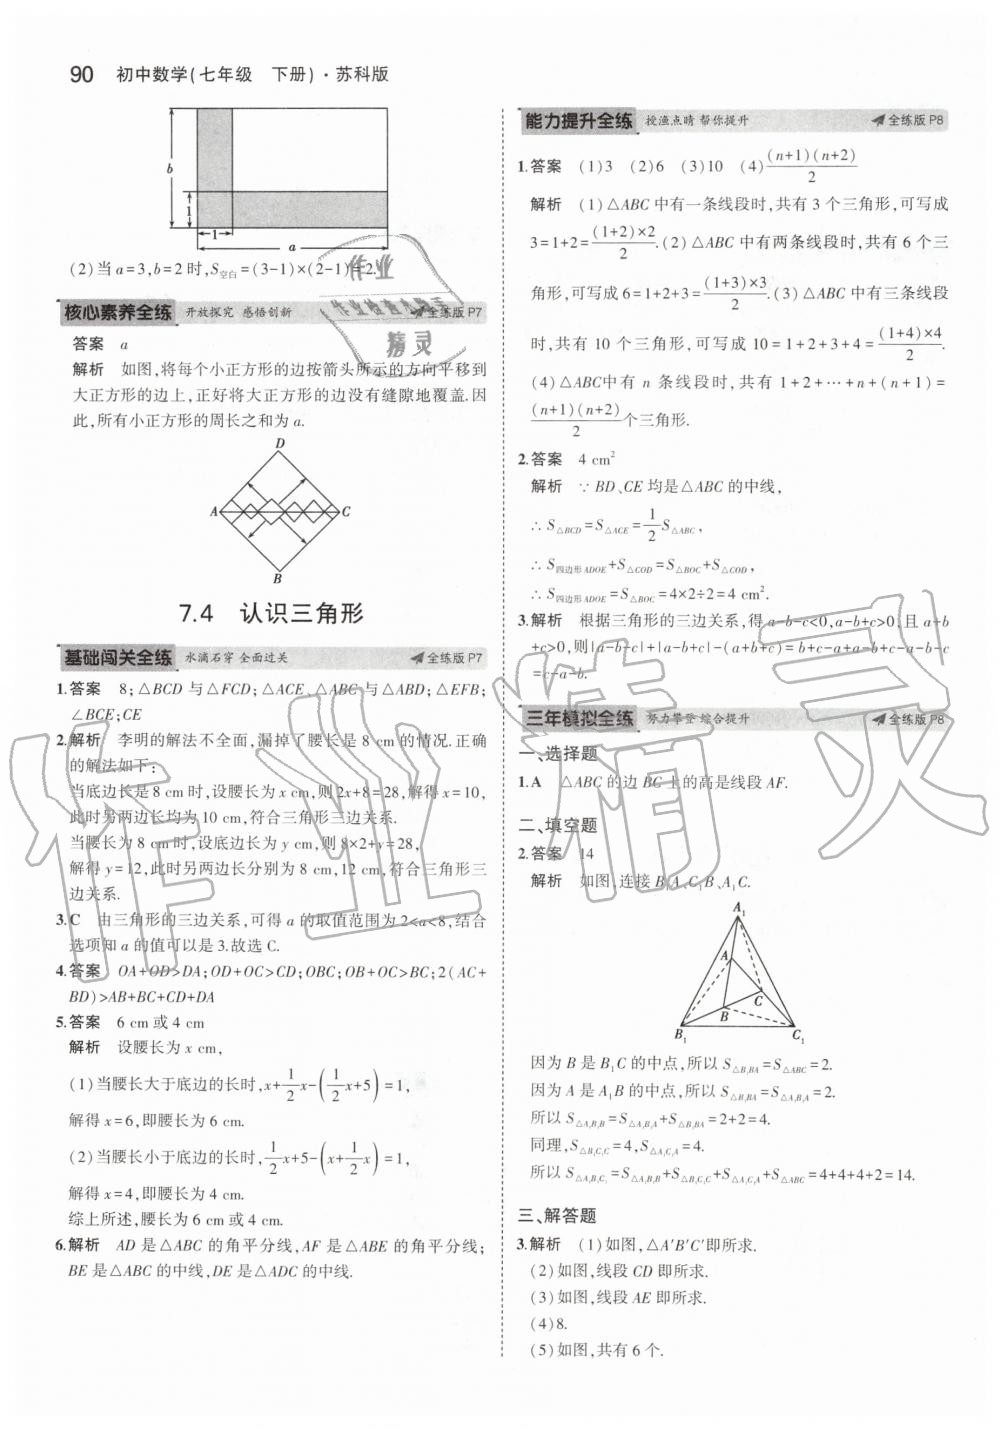 90 初中数学(七年级 下册)·苏科版
b
1
1
a
(2)当a=3,b=2时,S空白=(3-1)×(2-1)=2.
核心素养全练 开放探究 感悟创新 全练版P7
答案 a
解析 如图,将每个小正方形的边按箭头所示的方向平移到
大正方形的边上,正好将大正方形的边没有缝隙地覆盖.因
此,所有小正方形的周长之和为a.
D
A C
B
7.4 认识三角形
基础闯关全练 水滴石穿 全面过关 全练版P7
1.答案 8;△BCD与△FCD;△ACE、△ABC与△ABD;△EFB;
∠BCE;CE
2.解析 李明的解法不全面,漏掉了腰长是8 cm的情况.正确
的解法如下:
当底边长是8 cm时,设腰长为x cm,则2x+8=28,解得x=10,
此时另两边长均为10 cm,符合三角形三边关系.
当腰长为8 cm时,设底边长为y cm,则8×2+y=28,
解得y=12,此时另两边长分别为8 cm,12 cm,符合三角形三
边关系.
3.C 由三角形的三边关系,可得a的取值范围为2<a<8,结合
选项知a的值可以是3.故选C.
4.答案 OA+OD>DA;OD+OC>CD;OBC;OB+OC>BC;2(AC+
BD)>AB+BC+CD+DA
5.答案 6 cm或4 cm
解析 设腰长为x cm,
(1)当腰长大于底边的长时,x+1/2x-(1/2x+5)=1,
解得x=6,即腰长为6 cm.
(2)当腰长小于底边的长时,1/2x+5-(x+1/2x)=1,
解得x=4,即腰长为4 cm.
综上所述,腰长为6 cm或4 cm.
6.解析 AD是△ABC的角平分线,AF是△ABE的角平分线;
BE是△ABC的中线,DE是△ADC的中线.
能力提升全练 授渔点睛 帮你提升 全练版P8
1.答案 (1)3 (2)6 (3)10 (4)(n+1)(n+2)/2
解析 (1)△ABC中有一条线段时,共有3个三角形,可写成
3=1+2=(1+2)×2/2.(2)△ABC中有两条线段时,共有6个三
角形,可写成6=1+2+3=(1+3)×3/2.(3)△ABC中有三条线段
时,共有10个三角形,可写成10=1+2+3+4=(1+4)×4/2.
(4)△ABC中有n条线段时,共有1+2+…+n+(n+1)=
(n+1)(n+2)/2个三角形.
2.答案 4 cm²
解析 ∵BD、CE均是△ABC的中线,
∴S△BCD=S△ACE=1/2S△ABC,
∴S四边形ADOE+S△COD=S△BOC+S△COD,
∴S四边形ADOE=S△BOC=4×2÷2=4 cm².
3.解析 根据三角形的三边关系,得a-b-c<0,a-b+c>0,且a+b
+c>0,则|a-b-c|+|a-b+c|-(a+b+c)=b+c-a+a-b+c-a-b-c
=c-a-b.
三年模拟全练 努力攀登 综合提升 全练版P8
一、选择题
1.A △ABC的边BC上的高是线段AF.
二、填空题
2.答案 14
解析 如图,连接B₁A、C₁B、A₁C.
A₁
A
C
B
B₁ C₁
因为B是B₁C的中点,所以S△B₁BA=S△ABC=2.
因为A是A₁B的中点,所以S△B₁BA=S△A₁B₁A=2.
所以S△A₁B₁B=S△A₁B₁A+S△B₁BA=2+2=4.
同理,S△B₁C₁C=4,S△A₁C₁A=4.
所以S△A₁B₁C₁=S△A₁B₁B+S△B₁C₁C+S△A₁C₁A+S△ABC=4+4+4+2=14.
三、解答题
3.解析 (1)如图,△A'B'C'即所求.
(2)如图,线段CD即所求.
(3)如图,线段AE即所求.
(4)8.
(5)如图,共有6个.
作业
作业检查小助手
精灵
作业精灵